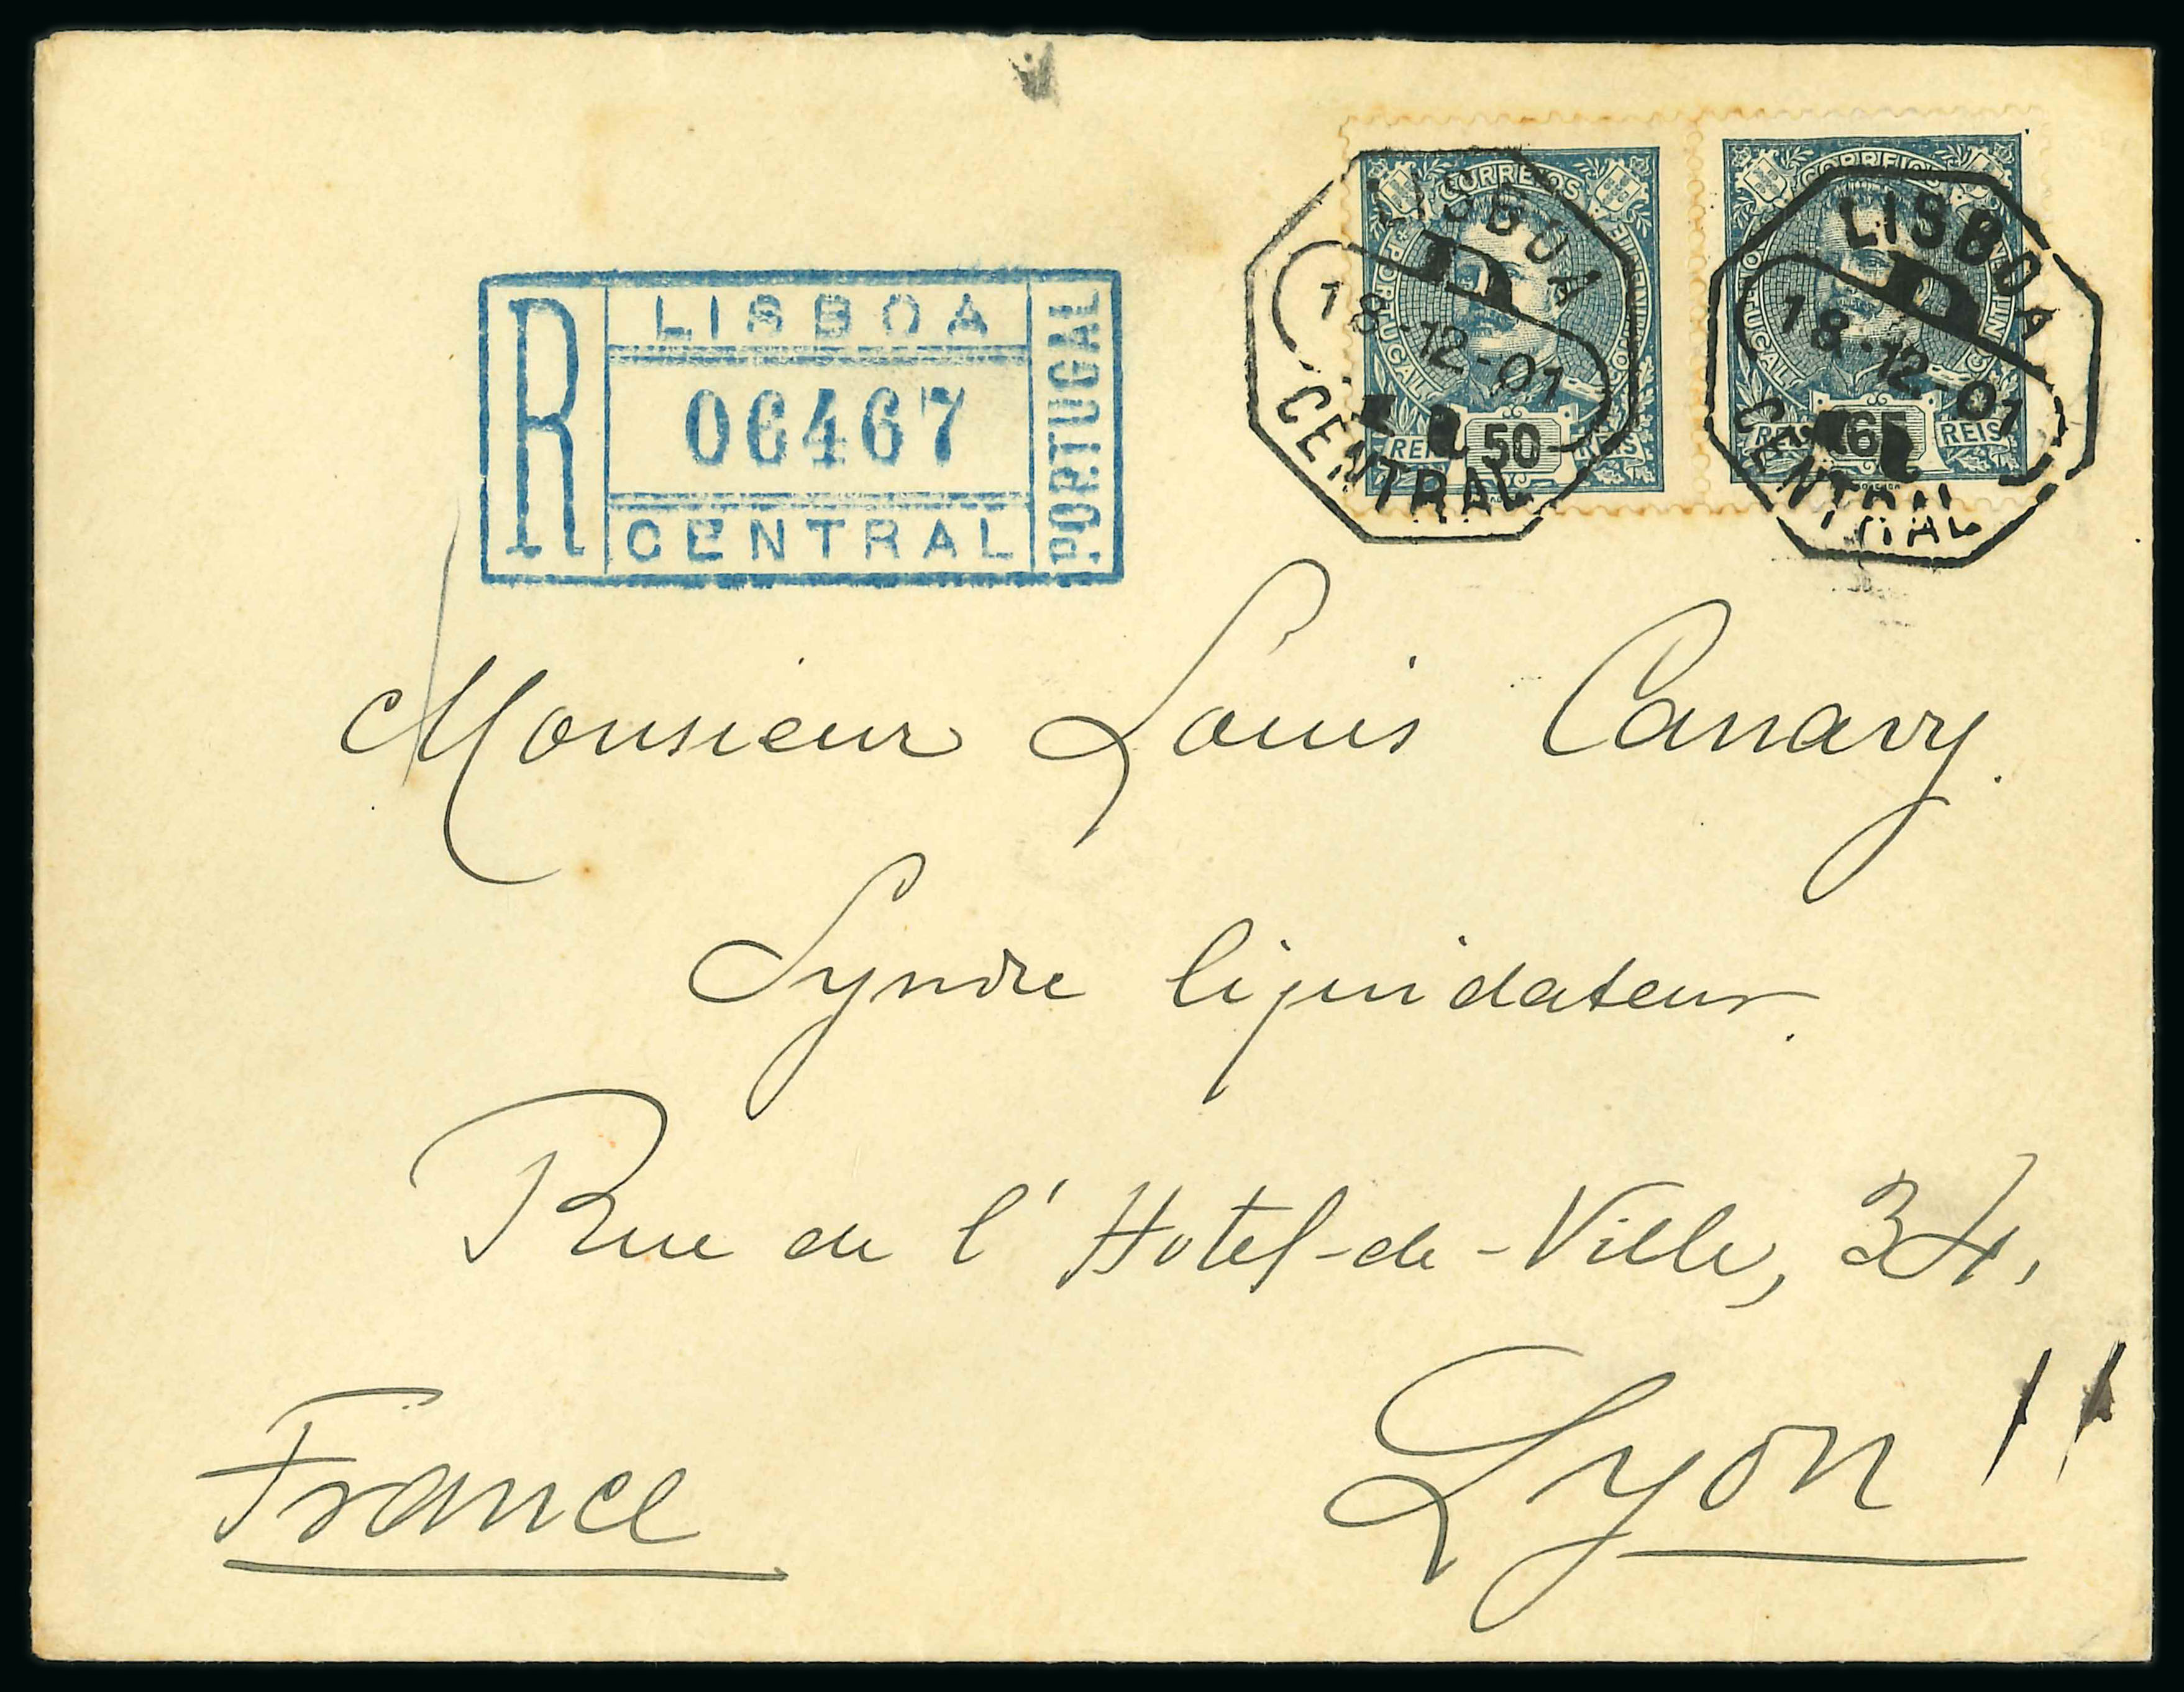 R
LISBOA
06467
CENTRAL
PORTUGAL
CORREIOS
PORTUGAL
CONTINENTE
REIS 50 REIS
LISBOA
18-12-01
CENTRAL
CORREIOS
PORTUGAL
CONTINENTE
REIS 65 REIS
LISBOA
18-12-01
CENTRAL
Monsieur Louis Canavy.
Syndic liquidateur.
Rue de l'Hotel-de-Ville, 34,
Lyon
France